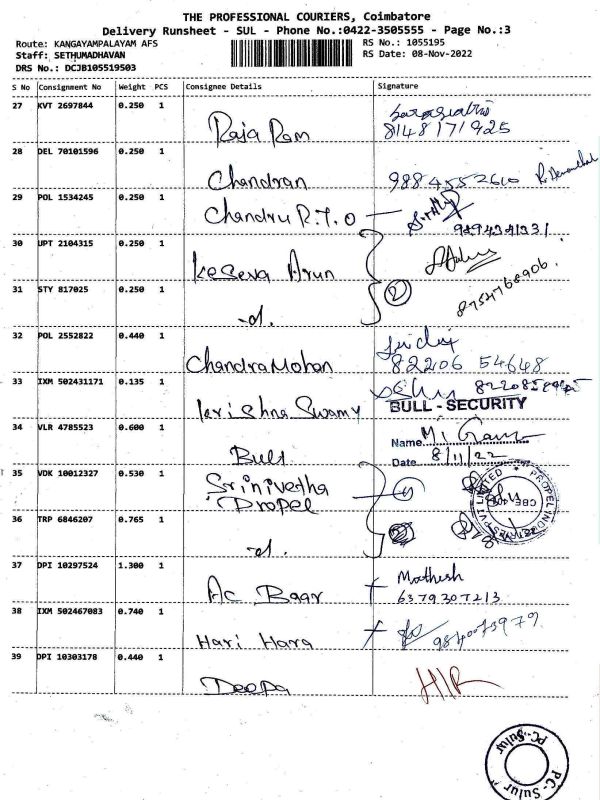 THE PROFESSIONAL COURIERS, Coimbatore
Delivery Runsheet - SUL - Phone No.:0422-3505555 - Page No.:3
Route: KANGAYAMPALAYAM AFS
RS No.: 1055195
Staff: SETHUMADHAVAN
RS Date: 08-Nov-2022
DRS No.: DCJB105519503
S No Consignment No Weight PCS Consignee Details Signature
27 KVT 2697844 0.250 1
Raja Ram
8148171925
28 DEL 70101596 0.250 1
Chandran
9884552610
29 POL 1534245 0.250 1
Chandru R.T.O
30 UPT 2104315 0.250 1
Keseva Arun
31 STY 817025 0.250 1
2
8754768906
32 POL 2552822 0.440 1
ChandraMohan
82206 54648
33 IXM 502431171 0.135 1
Swamy
BULL - SECURITY
34 VLR 4785523 0.600 1
Bull
Name
Date 8/11/22
35 VDK 10012327 0.530 1
Srinivetha
Propel
36 TRP 6846207 0.765 1
37 DPI 10297524 1.300 1
Ac Baar
Mathesh
6379207213
38 IXM 502467083 0.740 1
Hari Hara
39 DPI 10303178 0.440 1
Deepa
PC-Sulur
PC-Sulur